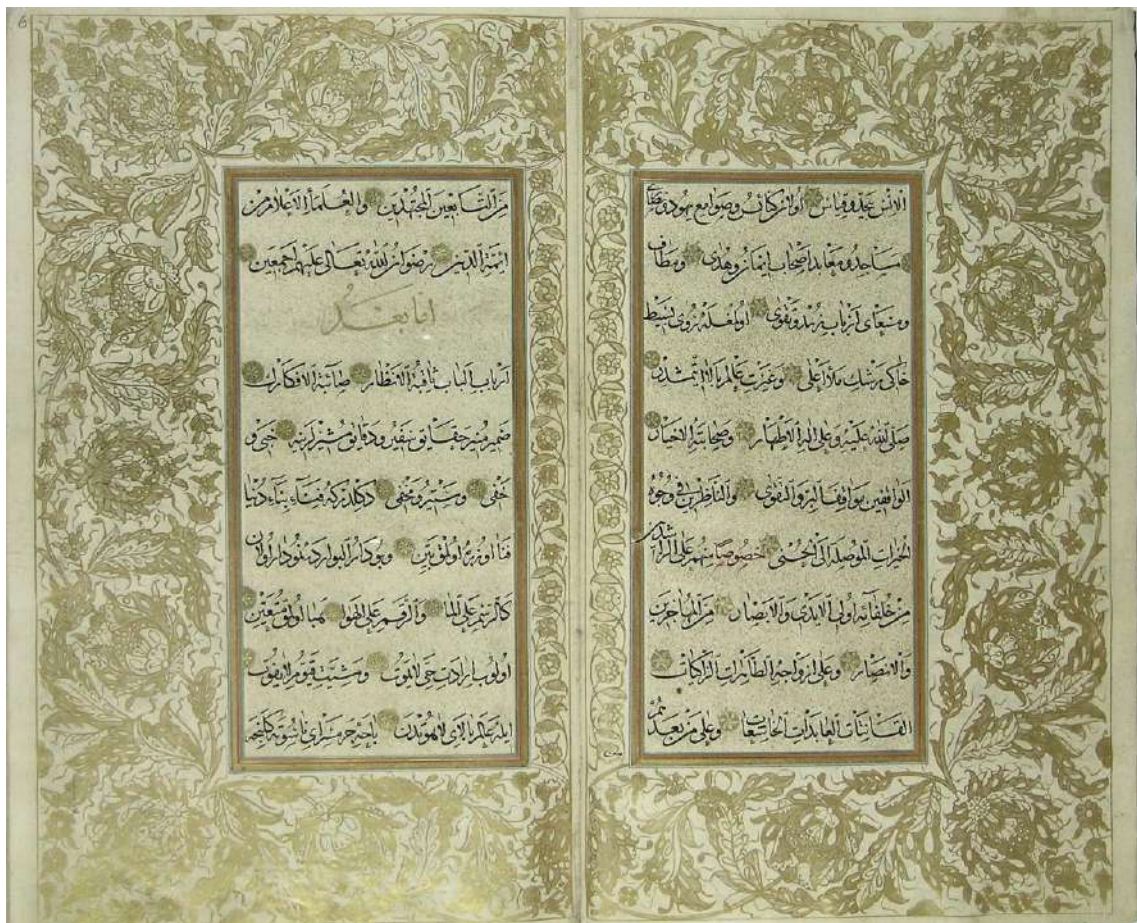 الانس بجد و قیاس اولان کنائس و صوامع یهود و نصاری
مساجد و معابد اصحاب ایمان و هدی و مطاف
و مسعای ارباب زهد و تقوی اولمغله روی بسیط
خاکی رشک ملأ اعلی و غیرت عالم بالا ایتمشدر
صلی الله علیه و علی اله الاطهار و صحابته الاخیار
الواقفین مواقف البر و التقوی والناظرین فی وجوه
الخیرات الموصلة الی الحسنی خصوصا منهم علی الراشدین
من خلفائه اولی الایدی والابصار من المهاجرین
والانصار و علی ازواجه الطاهرات الزاکیات
القانتات العابدات الخاشعات و علی من بعدهم
من التابعین المجتهدین والعلماء الاعلام من
ائمة الدین رضوان الله تعالی علیهم اجمعین
اما بعد
ارباب الباب ثاقبة الانظار صائبة الافکارک
ضمیر منیر حقایق و دقایق خبی و
خفی و ستیر و مخفی دکلدرکه فناء بناء دنیا
فنا اوزره اولمق بین و بو دار البوار
کالرسم علی الماء والرقم علی الهوا هبا اولمق متعین
اولوب ارادت حی لایموت و مشیت قیوم لایفوت
ایله عالم بالای لاهوتدن باحه حرمسرای ناسوته کلنجه